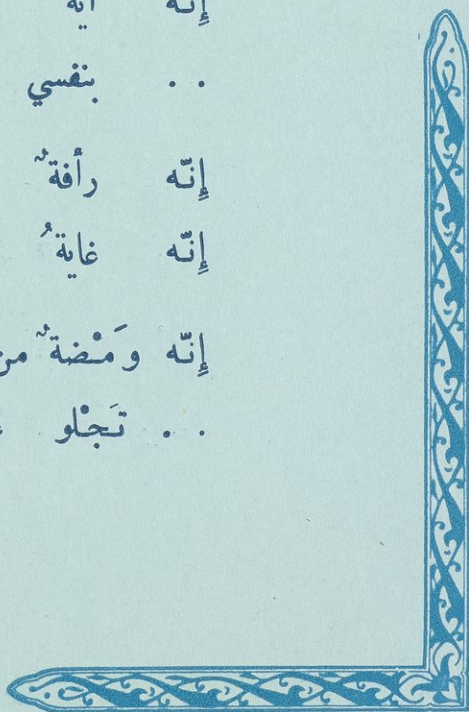 إِنّه آية
. . بنفسي
إِنّه رأفةٌ
إِنّه غايةُ
إِنّه وَمْضةٌ من
. . تَجْلو